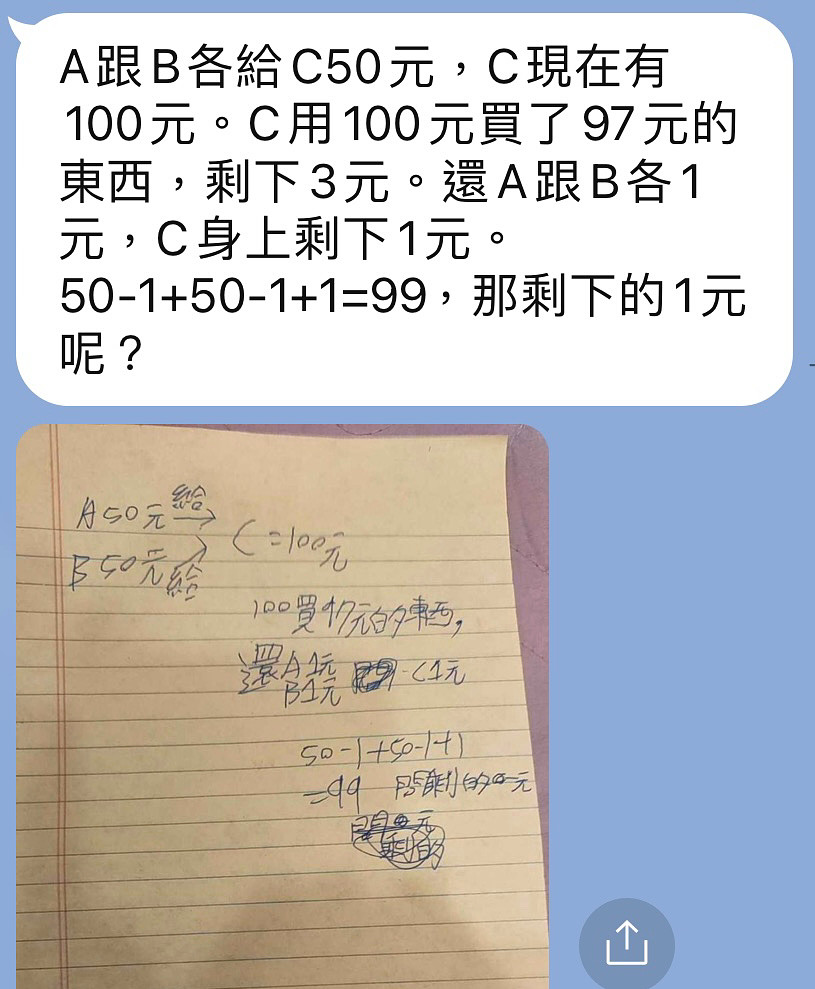 A跟B各給C50元，C現在有
100元。C用100元買了97元的
東西，剩下3元。還A跟B各1
元，C身上剩下1元。
50-1+50-1+1=99，那剩下的1元
呢？
A 50元 給
B 50元 給
C=100元
100買97元的東西，
還A 1元
B 1元 C 1元
50-1+50-1+1
=99 問剩的一元
剩的